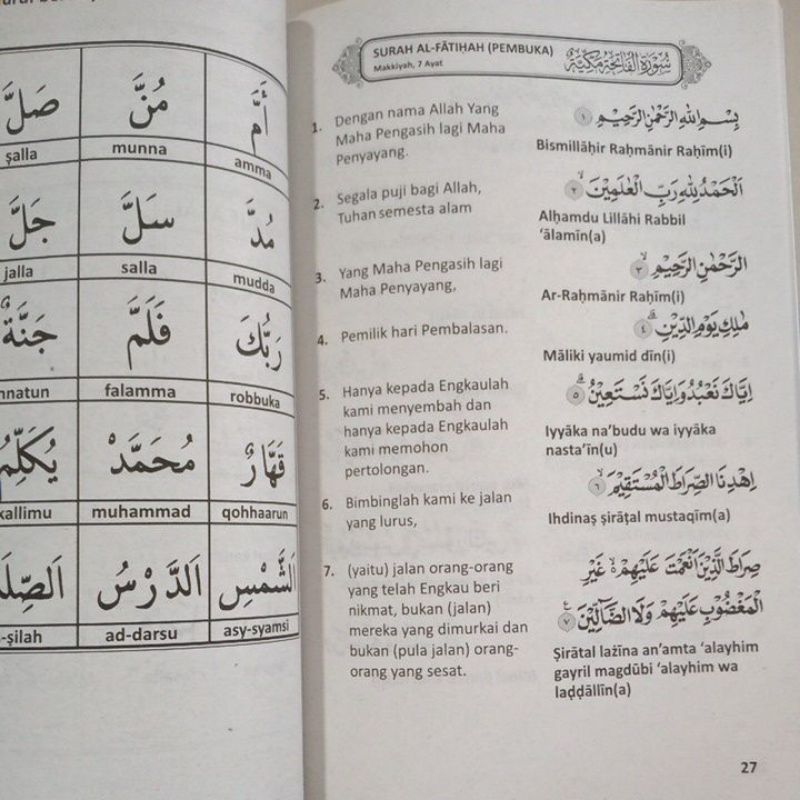 صَلَّ
مُنَّ
أَمَّ
ṣalla
munna
amma
جَلَّ
سَلَّ
مُدَّ
jalla
salla
mudda
جَنَّةٌ
فَلَمَّ
رَبُّكَ
falamma
robbuka
يُكَلِّمُ
مُحَمَّدْ
قَهَّارٌ
kallimu
muhammad
qohhaarun
اَلدَّرْسُ
اَلشَّمْسِ
ad-darsu
asy-syamsi
SURAH AL-FĀTIḤAH (PEMBUKA)
Makkiyah, 7 Ayat
سُوْرَةُ الْفَاتِحَةِ مَكِّيَّةٌ
1. Dengan nama Allah Yang
Maha Pengasih lagi Maha
Penyayang.
بِسْمِ اللّٰهِ الرَّحْمٰنِ الرَّحِيْمِ ١
Bismillāhir Raḥmānir Raḥīm(i)
2. Segala puji bagi Allah,
Tuhan semesta alam
اَلْحَمْدُ لِلّٰهِ رَبِّ الْعٰلَمِيْنَۙ ٢
Alḥamdu Lillāhi Rabbil
‘ālamīn(a)
3. Yang Maha Pengasih lagi
Maha Penyayang,
الرَّحْمٰنِ الرَّحِيْمِۙ ٣
Ar-Raḥmānir Raḥīm(i)
4. Pemilik hari Pembalasan.
مٰلِكِ يَوْمِ الدِّيْنِۗ ٤
Māliki yaumid dīn(i)
5. Hanya kepada Engkaulah
kami menyembah dan
hanya kepada Engkaulah
kami memohon
pertolongan.
اِيَّاكَ نَعْبُدُ وَاِيَّاكَ نَسْتَعِيْنُۗ ٥
Iyyāka na‘budu wa iyyāka
nasta‘īn(u)
6. Bimbinglah kami ke jalan
yang lurus,
اِهْدِنَا الصِّرَاطَ الْمُسْتَقِيْمَۙ ٦
Ihdinaṣ ṣirāṭal mustaqīm(a)
7. (yaitu) jalan orang-orang
yang telah Engkau beri
nikmat, bukan (jalan)
mereka yang dimurkai dan
bukan (pula jalan) orang-
orang yang sesat.
صِرَاطَ الَّذِيْنَ اَنْعَمْتَ عَلَيْهِمْ ەۙ غَيْرِ
الْمَغْضُوْبِ عَلَيْهِمْ وَلَا الضَّاۤلِّيْنَ ࣖ ٧
Ṣirātal lażīna an‘amta ‘alayhim
gayril magdūbi ‘alayhim wa
laḍḍāllīn(a)
27